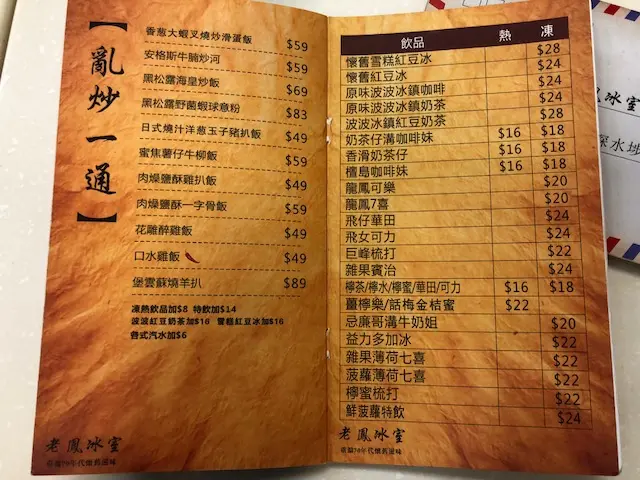 【亂炒一通】
香葱大蝦叉燒炒滑蛋飯 $59
安格斯牛腩炒河 $59
黑松露海皇炒飯 $69
黑松露野菌蝦球意粉 $83
日式燒汁洋葱玉子豬扒飯 $49
蜜焦薯仔牛柳飯 $59
肉燥鹽酥雞扒飯 $49
肉燥鹽酥一字骨飯 $59
花雕醉雞飯 $49
口水雞飯 $49
堡雲蘇燒羊扒 $89
凍熱飲品加$8 特飲加$14
波波紅豆奶茶加$16 雪糕紅豆冰加$16
各式汽水加$6
老鳳冰室
重顯70年代懷舊滋味
飲品 熱 凍
懷舊雪糕紅豆冰 $28
懷舊紅豆冰 $24
原味波波冰鎮咖啡 $24
原味波波冰鎮奶茶 $24
波波冰鎮紅豆奶茶 $28
奶茶仔溝咖啡妹 $16 $18
香滑奶茶仔 $16 $18
檀島咖啡妹 $16 $18
龍鳳可樂 $20
龍鳳7喜 $20
飛仔華田 $24
飛女可力 $24
巨峰梳打 $22
雜果賓治 $24
檸茶/檸水/檸蜜/華田/可力 $16 $18
薑檸樂/話梅金桔蜜 $22
忌廉哥溝牛奶姐 $20
益力多加冰 $22
雜果薄荷七喜 $22
菠蘿薄荷七喜 $22
檸蜜梳打 $22
鮮菠蘿特飲 $24
老鳳冰室
重顯70年代懷舊滋味
鳳冰室
深水埗